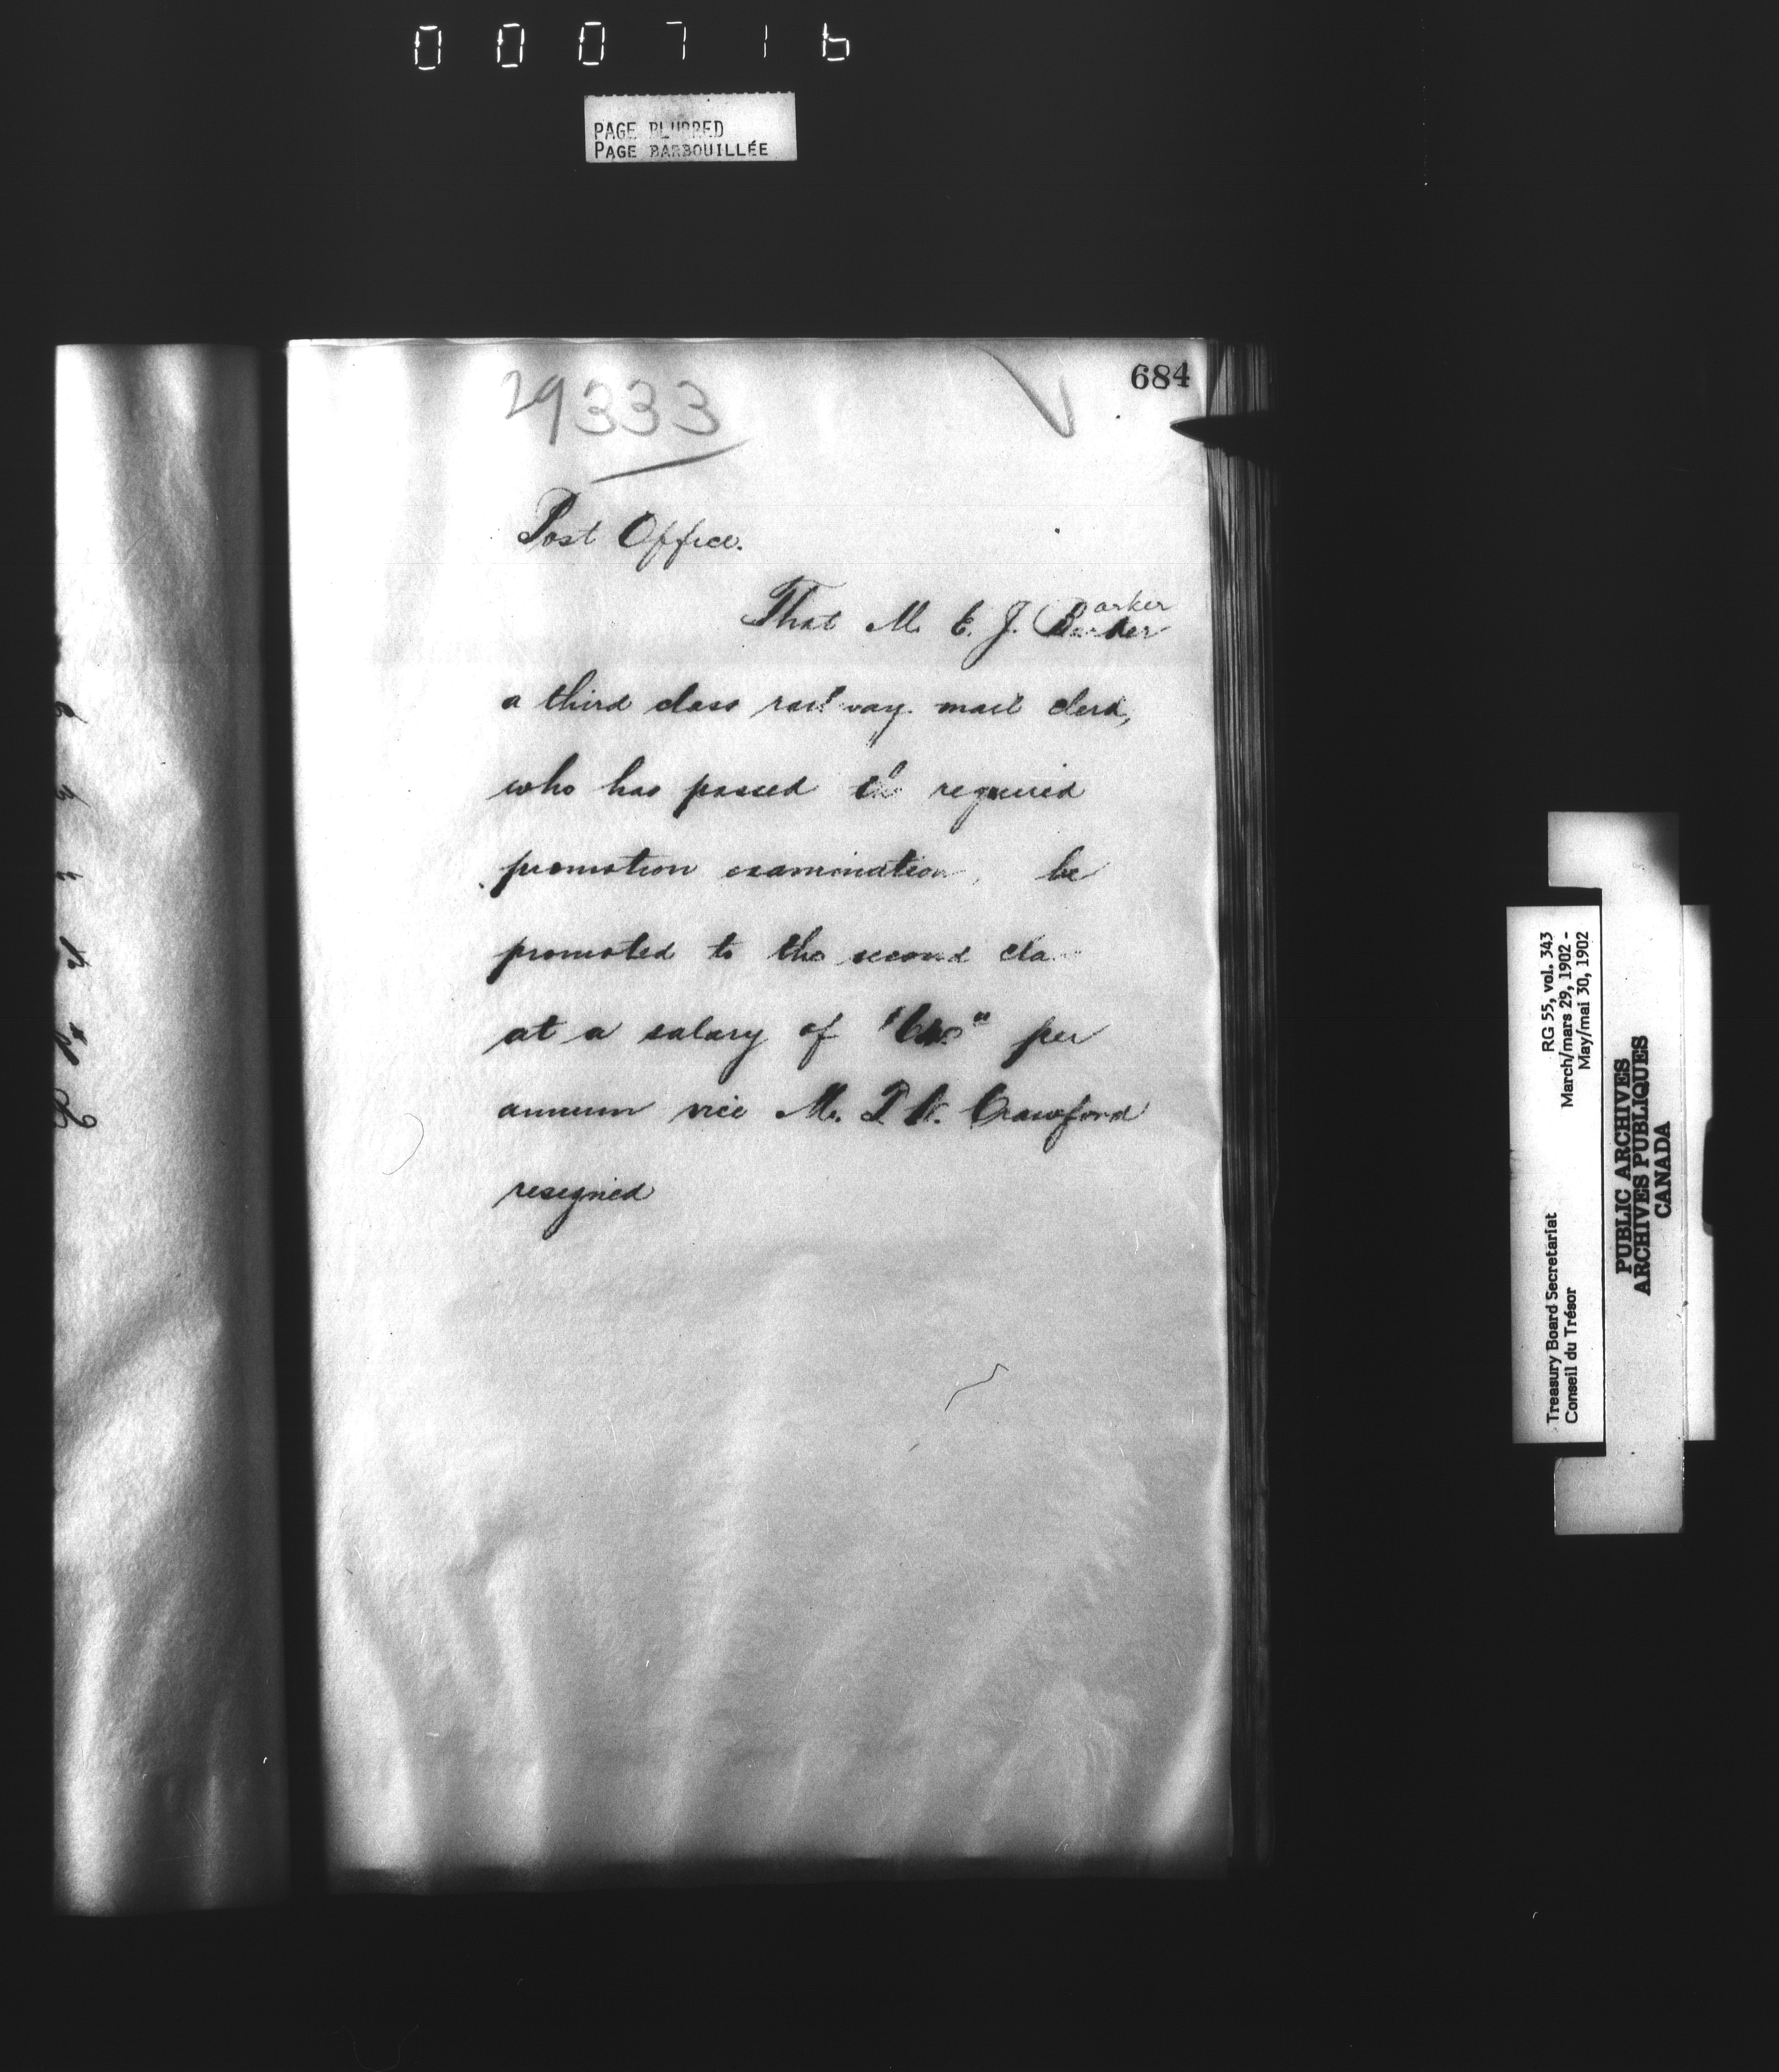 000716
PAGE BLURRED
PAGE BARBOUILLÉE
684
29333
Post Office.
arker
That M. E. J. Barker
a third class railway mail clerk,
who has passed the required
promotion examination, be
promoted to the second cla
at a salary of per
annum vice Mr. Crawford
resigned
RG 55, vol. 343
March/mars 29, 1902 -
May/mai 30, 1902
Treasury Board Secretariat
Conseil du Trésor
PUBLIC ARCHIVES
ARCHIVES PUBLIQUES
CANADA